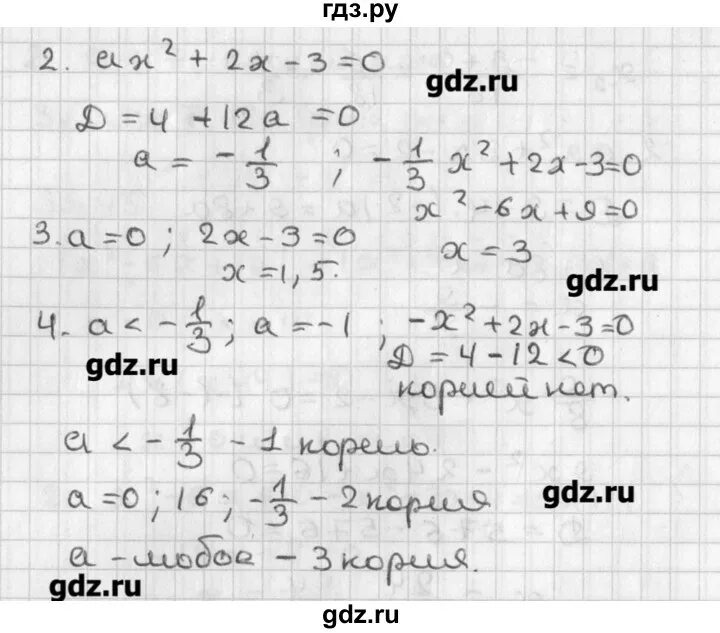 гдз.ру
2. ax² + 2x - 3 = 0
gdz.ru
Д = 4 + 12a = 0
a = - 1/3 ; - 1/3 x² + 2x - 3 = 0
x² - 6x + 9 = 0
3. a = 0 ; 2x - 3 = 0
x = 3
x = 1,5.
gdz.ru
4. a < - 1/3 ; a = -1 ; -x² + 2x - 3 = 0
Д = 4 - 12 < 0
gdz.ru
корней нет.
a < - 1/3 - 1 корень.
a = 0 ; 16 ; - 1/3 - 2 корня
gdz.ru
a - любое - 3 корня.
gdz.ru
gdz.ru